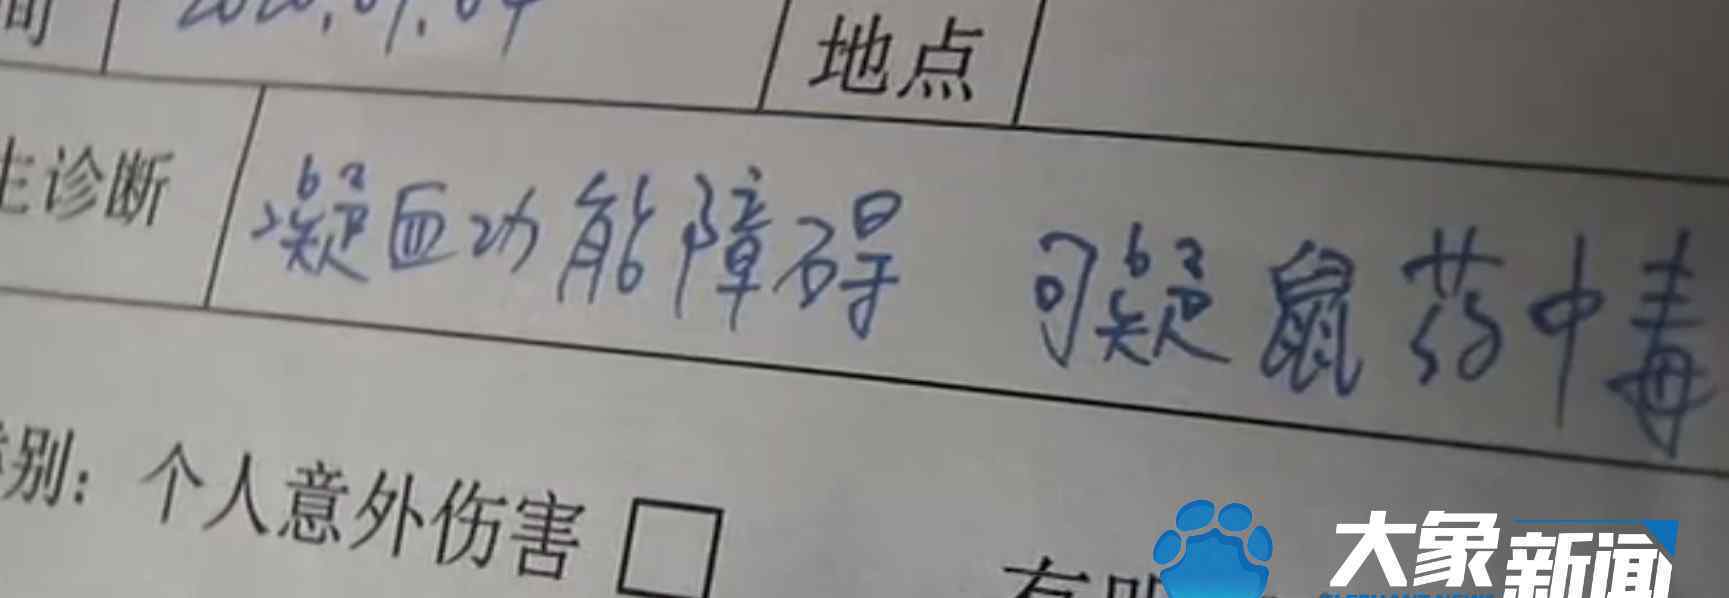 间 2020.07.04 地点
主诊断 凝血功能障碍 可疑鼠药中毒
类别：个人意外伤害 □ 有明
大象新闻
ELEPHANT NEWS